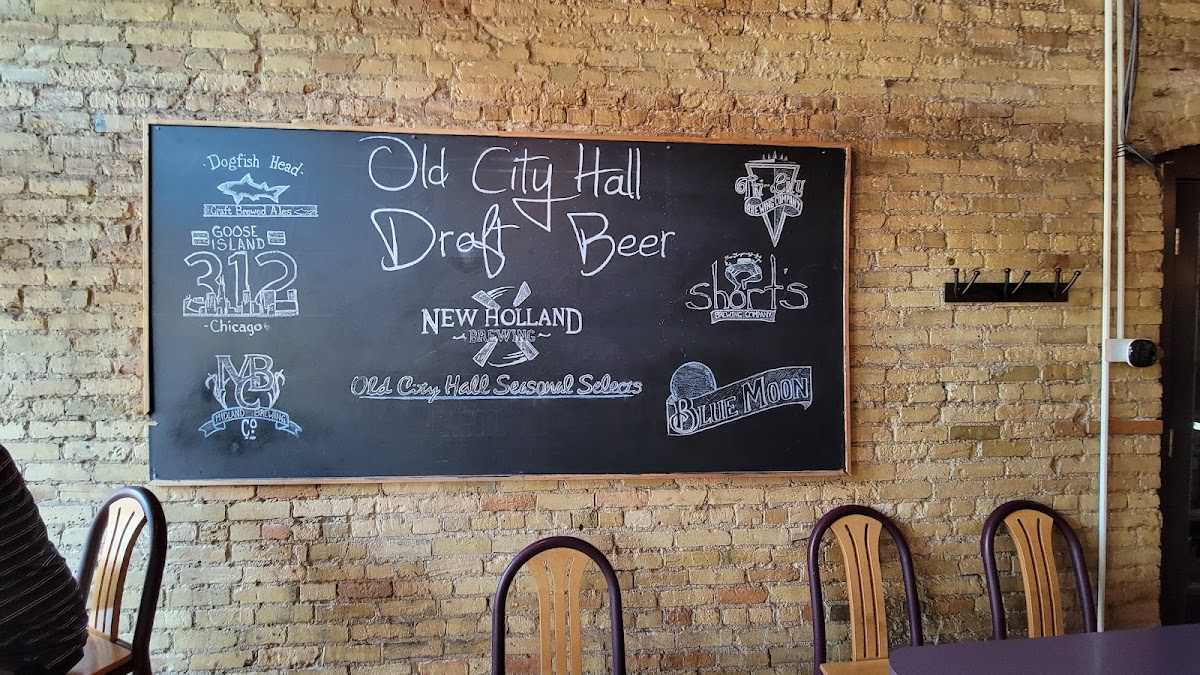 Old City Hall
Draft Beer
·Dogfish Head·
Craft Brewed Ales
GOOSE
ISLAND
312
-Chicago-
MBC
MIDLAND BREWING
Co
NEW HOLLAND
BREWING
Old City Hall Seasonal Selects
Tri-City
BREWING COMPANY
Short's
BREWING COMPANY
BLUE MOON